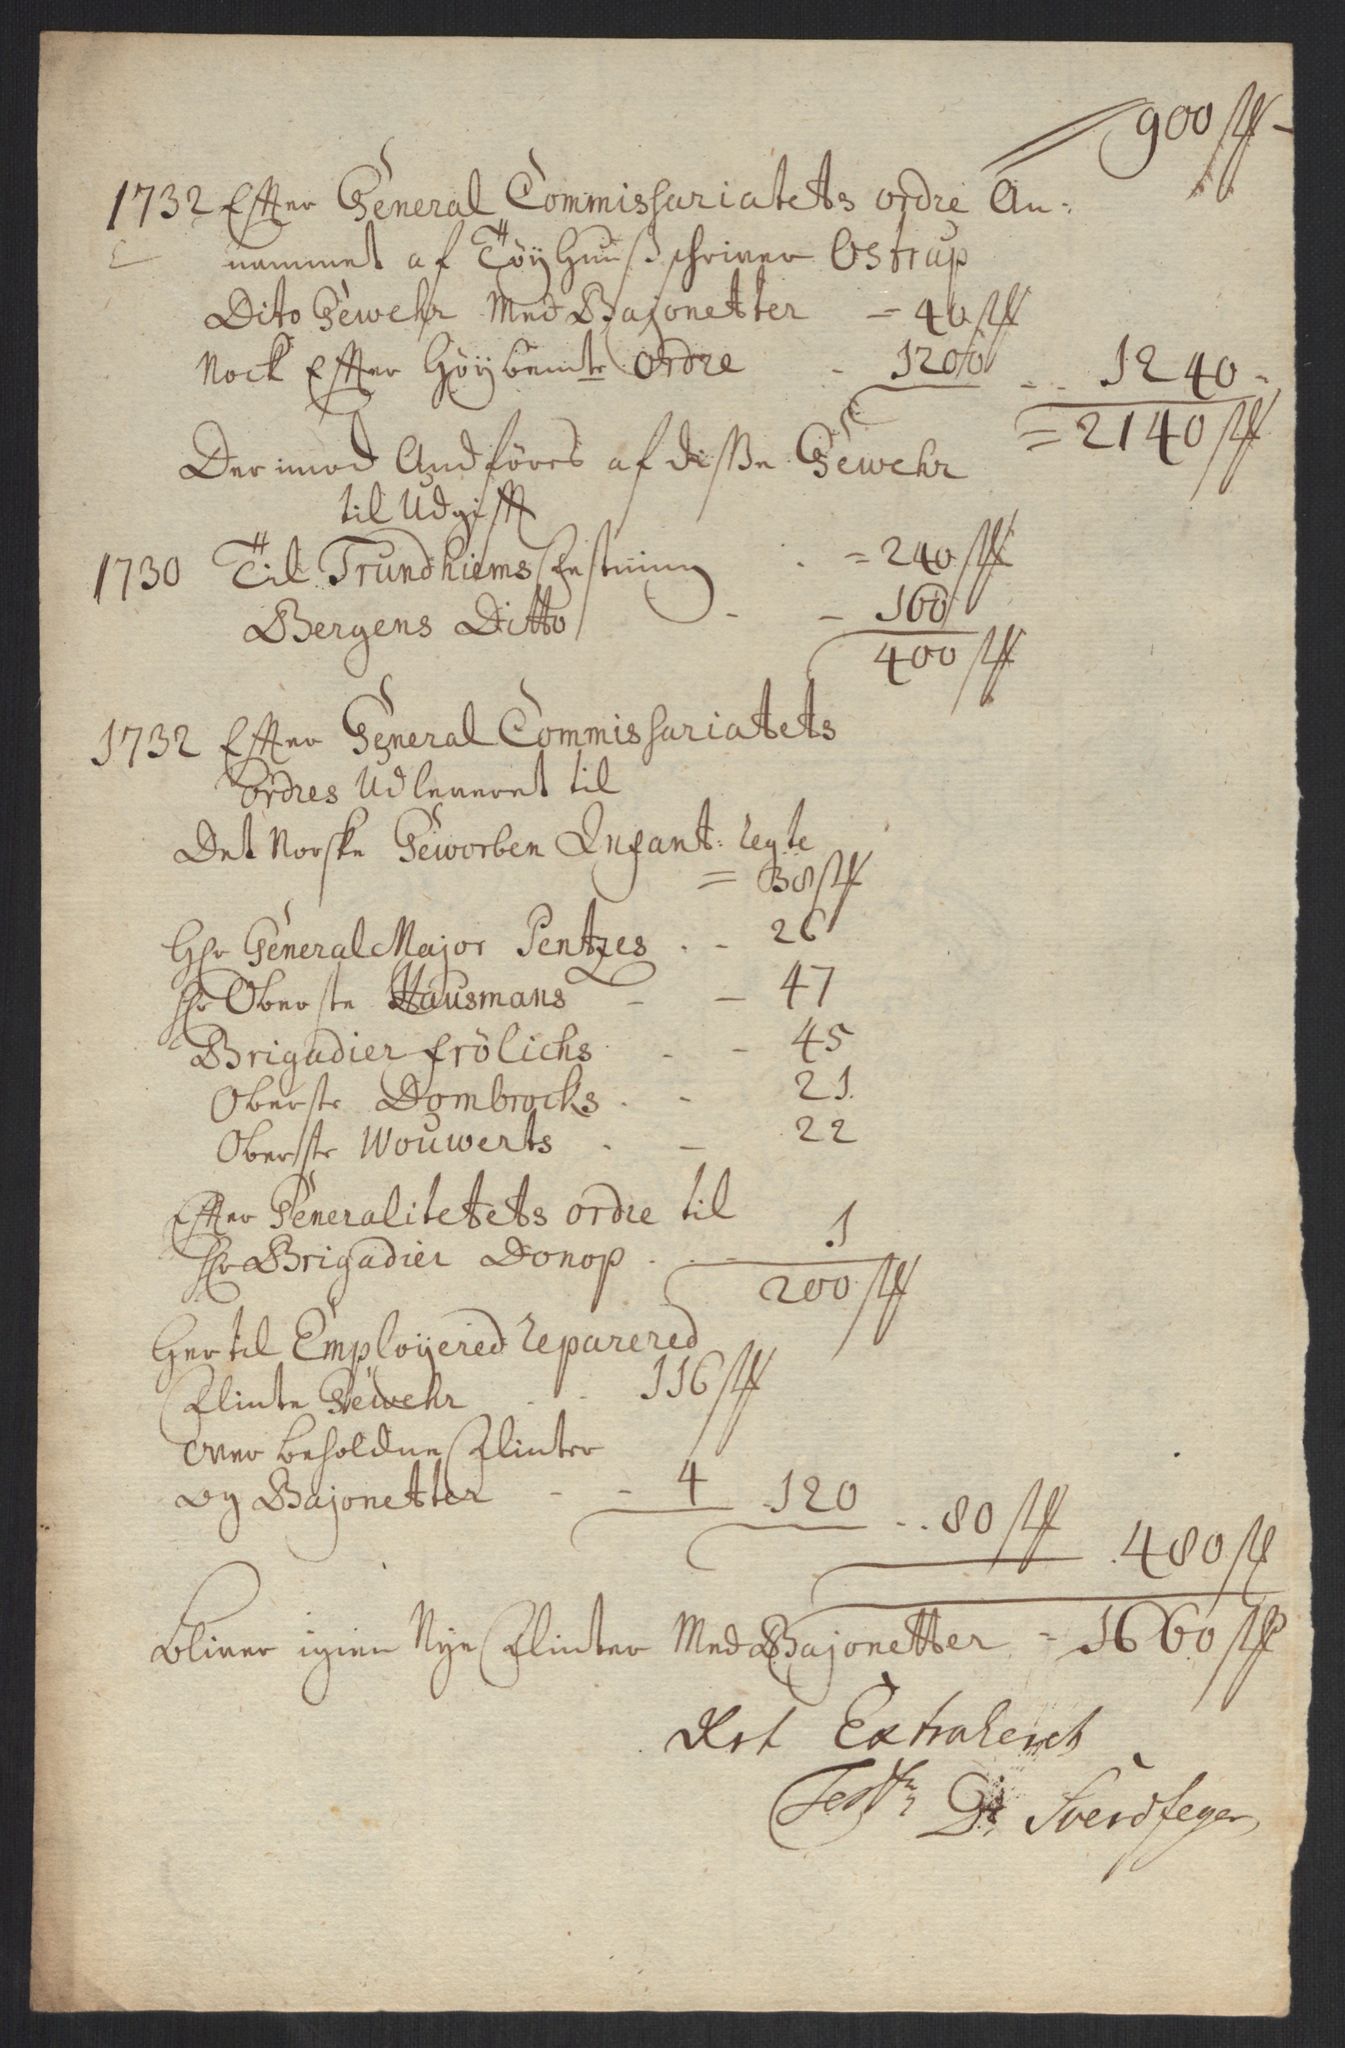 900 st
1732 Effter General Commissariatets ordre An-
nammet af Töyhuusschriver Ostrup
Dito Gewehr Med Bajonetter = 40 st
Nock Effter Höybemte Ordre - 1200 - 1240 -
= 2140 st
Der imod Andföres af disse Gewehr
til Udgifft
1730 Til Trundhiems Festning = 240 st
Bergens Ditto - - 160
400 st
1732 Effter General Commissariatets
Ordres Udleveret til
Det Norske Geworben Infant: Regte
= 38 st
Hr General Major Pentzes - - 26
Hr Oberste Hausmans - - 47
Brigadier frölichs - - 45
Oberste Dombrocks - - 21
Oberste Wouwerts - - 22
Effter Generalitetets ordre til
Hr Brigadier Donop - - 1
200 st
Her til Employered reparered
Flinte Gewehr - - 116 st
over beholdne Flinter
og Bajonetter - - 4 120 - 80 st 480 st
Bliver igien Nye Flinter Med Bajonetter = 1660 st
Extraherit
Sverdfeger